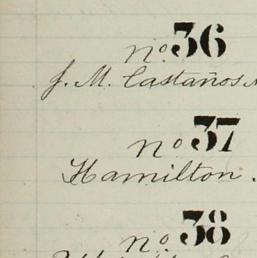 No 36
J. M. Castaños
No 37
Hamilton.
No 38